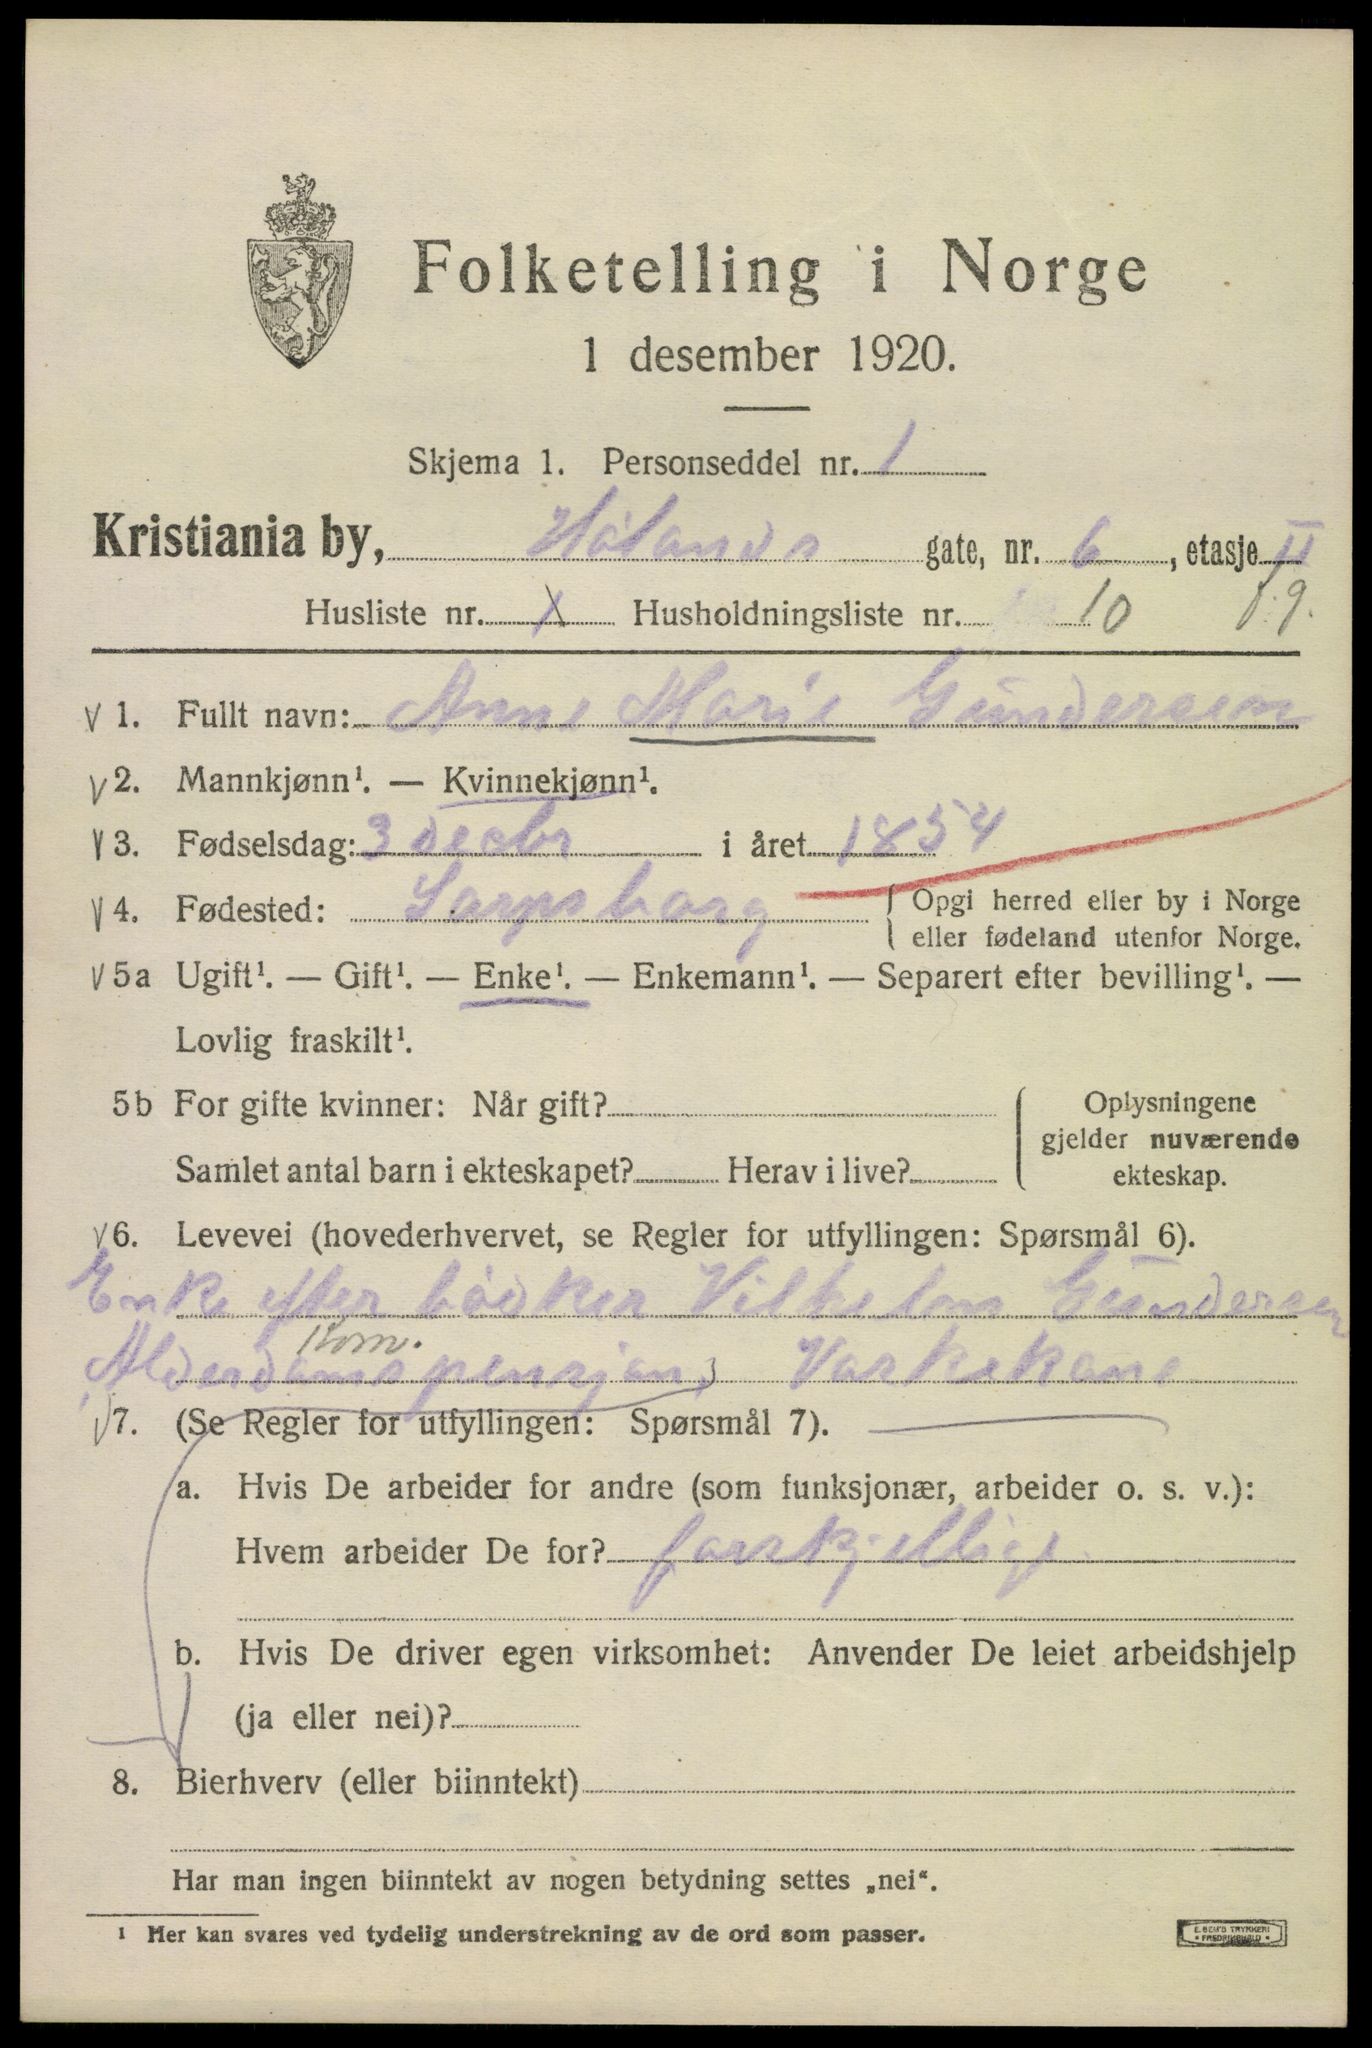 Folketelling i Norge
1 desember 1920.
Skjema 1. Personseddel nr. 1
Kristiania by, Hølands gate, nr. 6, etasje II
Husliste nr. 1 Husholdningsliste nr. 10 f.g.
1. Fullt navn: Anne Marie Gundersen
2. Mannkjønn¹. — Kvinnekjønn¹.
3. Fødselsdag: 3 decbr i året 1854
4. Fødested: Sarpsborg { Opgi herred eller by i Norge
eller fødeland utenfor Norge.
5a Ugift¹. — Gift¹. — Enke¹. — Enkemann¹. — Separert efter bevilling¹. —
Lovlig fraskilt¹.
5b For gifte kvinner: Når gift? { Oplysningene
gjelder nuværende
Samlet antal barn i ekteskapet? Herav i live? ekteskap.
6. Levevei (hovederhvervet, se Regler for utfyllingen: Spørsmål 6).
Enke efter bødker Vilhelm Gundersen
Kom.
Alderdomspensjon, Vaskekone
7. (Se Regler for utfyllingen: Spørsmål 7).
a. Hvis De arbeider for andre (som funksjonær, arbeider o. s. v.):
Hvem arbeider De for? forskjellige
b. Hvis De driver egen virksomhet: Anvender De leiet arbeidshjelp
(ja eller nei)?
8. Bierhverv (eller biinntekt)
Har man ingen biinntekt av nogen betydning settes „nei“.
¹ Her kan svares ved tydelig understrekning av de ord som passer.
E. SEM'S TRYKKERI
FREDRIKSHALD